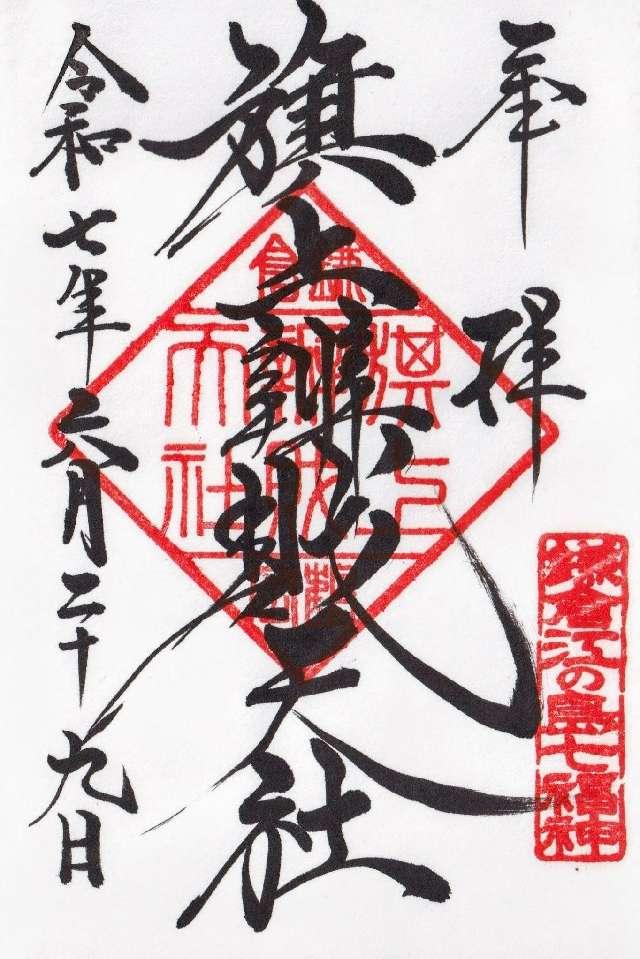 奉拝
鎌倉江の島七福神
旗上辨財天社
鎌倉
旗上
辨財
天社
令和七年六月二十九日